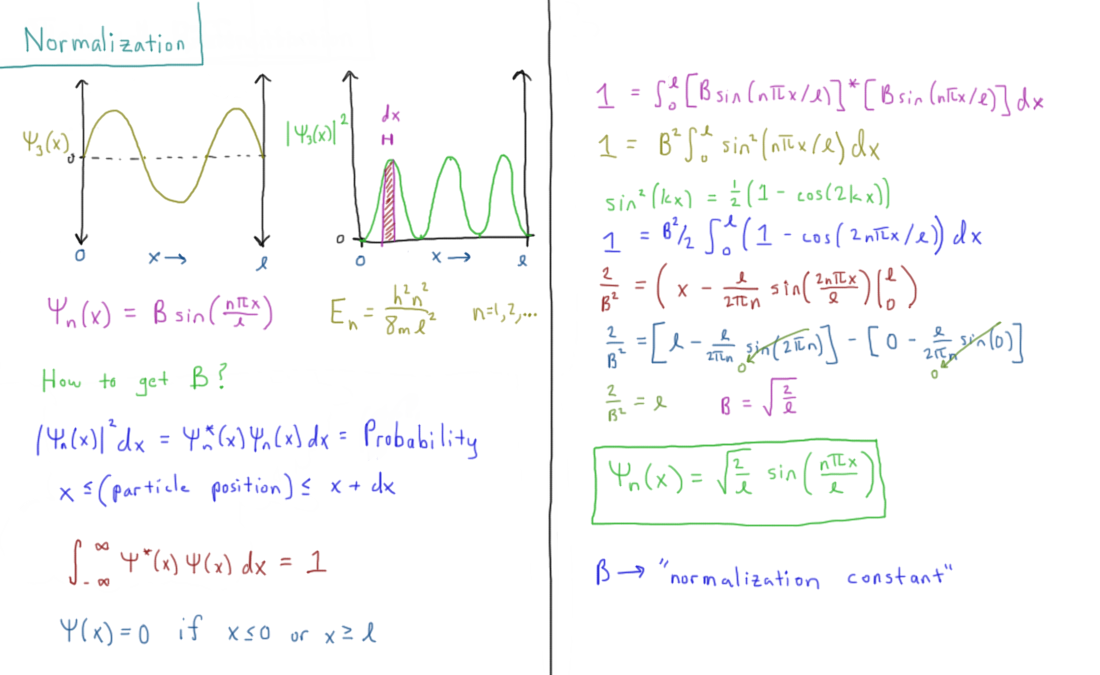 Normalization
Ψ₃(x)
0
0 x→ l
|Ψ₃(x)|²
dx
0
0 x→ l
Ψₙ(x) = B sin(nπx/l) Eₙ = h²n²/8ml² n=1,2,...
How to get B?
|Ψₙ(x)|²dx = Ψₙ*(x)Ψₙ(x)dx = Probability
x ≤ (particle position) ≤ x + dx
∫₋∞^∞ Ψ*(x)Ψ(x) dx = 1
Ψ(x)=0 if x≤0 or x≥l
1 = ∫₀ˡ[B sin(nπx/l)]*[B sin(nπx/l)]dx
1 = B²∫₀ˡ sin²(nπx/l)dx
sin²(kx) = ½(1 - cos(2kx))
1 = B²/2 ∫₀ˡ(1 - cos(2nπx/l))dx
2/B² = (x - l/2πn sin(2nπx/l)|₀ˡ)
2/B² = [l - l/2πn sin(2πn)] - [0 - l/2πn sin(0)]
0 0
2/B² = l B = √(2/l)
Ψₙ(x) = √(2/l) sin(nπx/l)
B → "normalization constant"